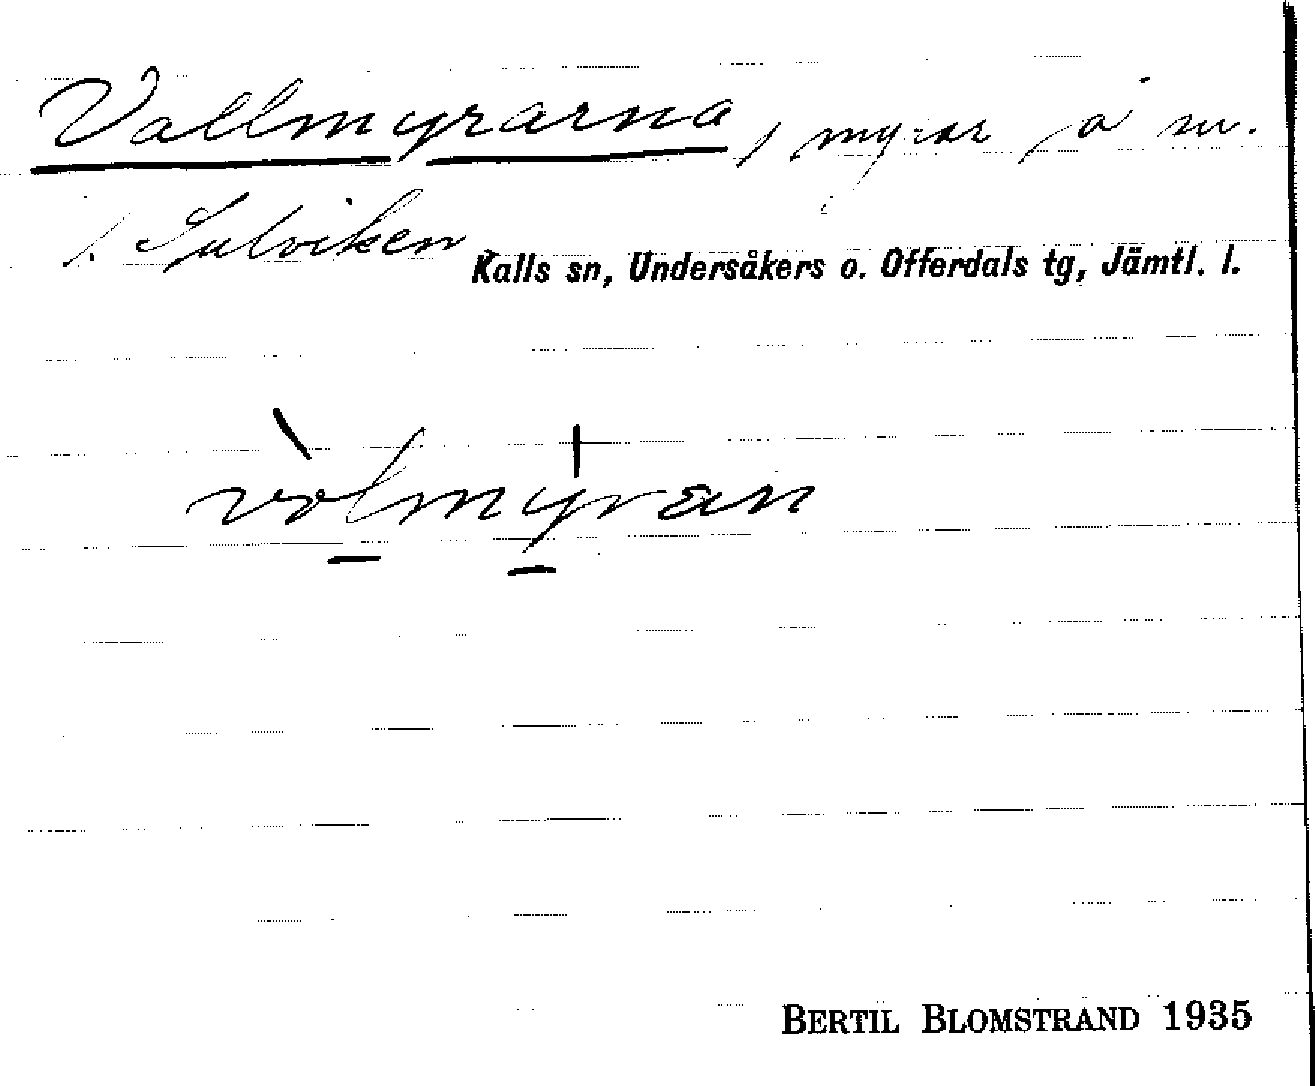 Vallmyrarna, myrar på nv.
i. Sulviken
Kalls sn, Undersåkers o. Offerdals tg, Jämtl. l.
vòlmyran
BERTIL BLOMSTRAND 1935